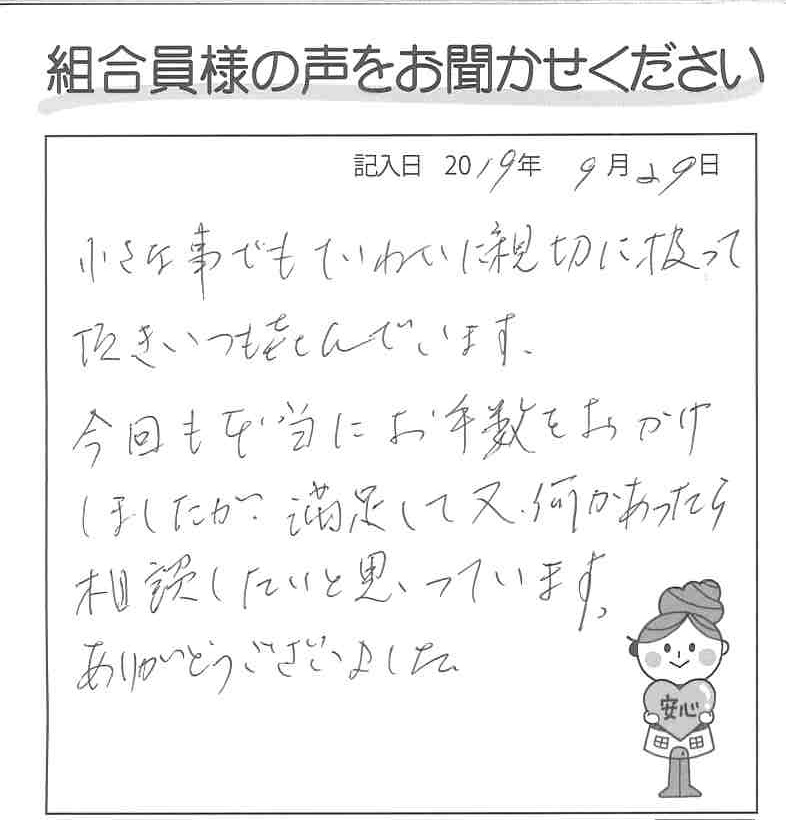 組合員様の声をお聞かせください
記入日 2019年 9月29日
小さな事でもていねいに親切に扱って
頂きいつも喜んでいます、
今回も本当にお手数をおかけ
しましたが、満足して又、何かあったら
相談したいと思っています。
ありがとうございました。
安心